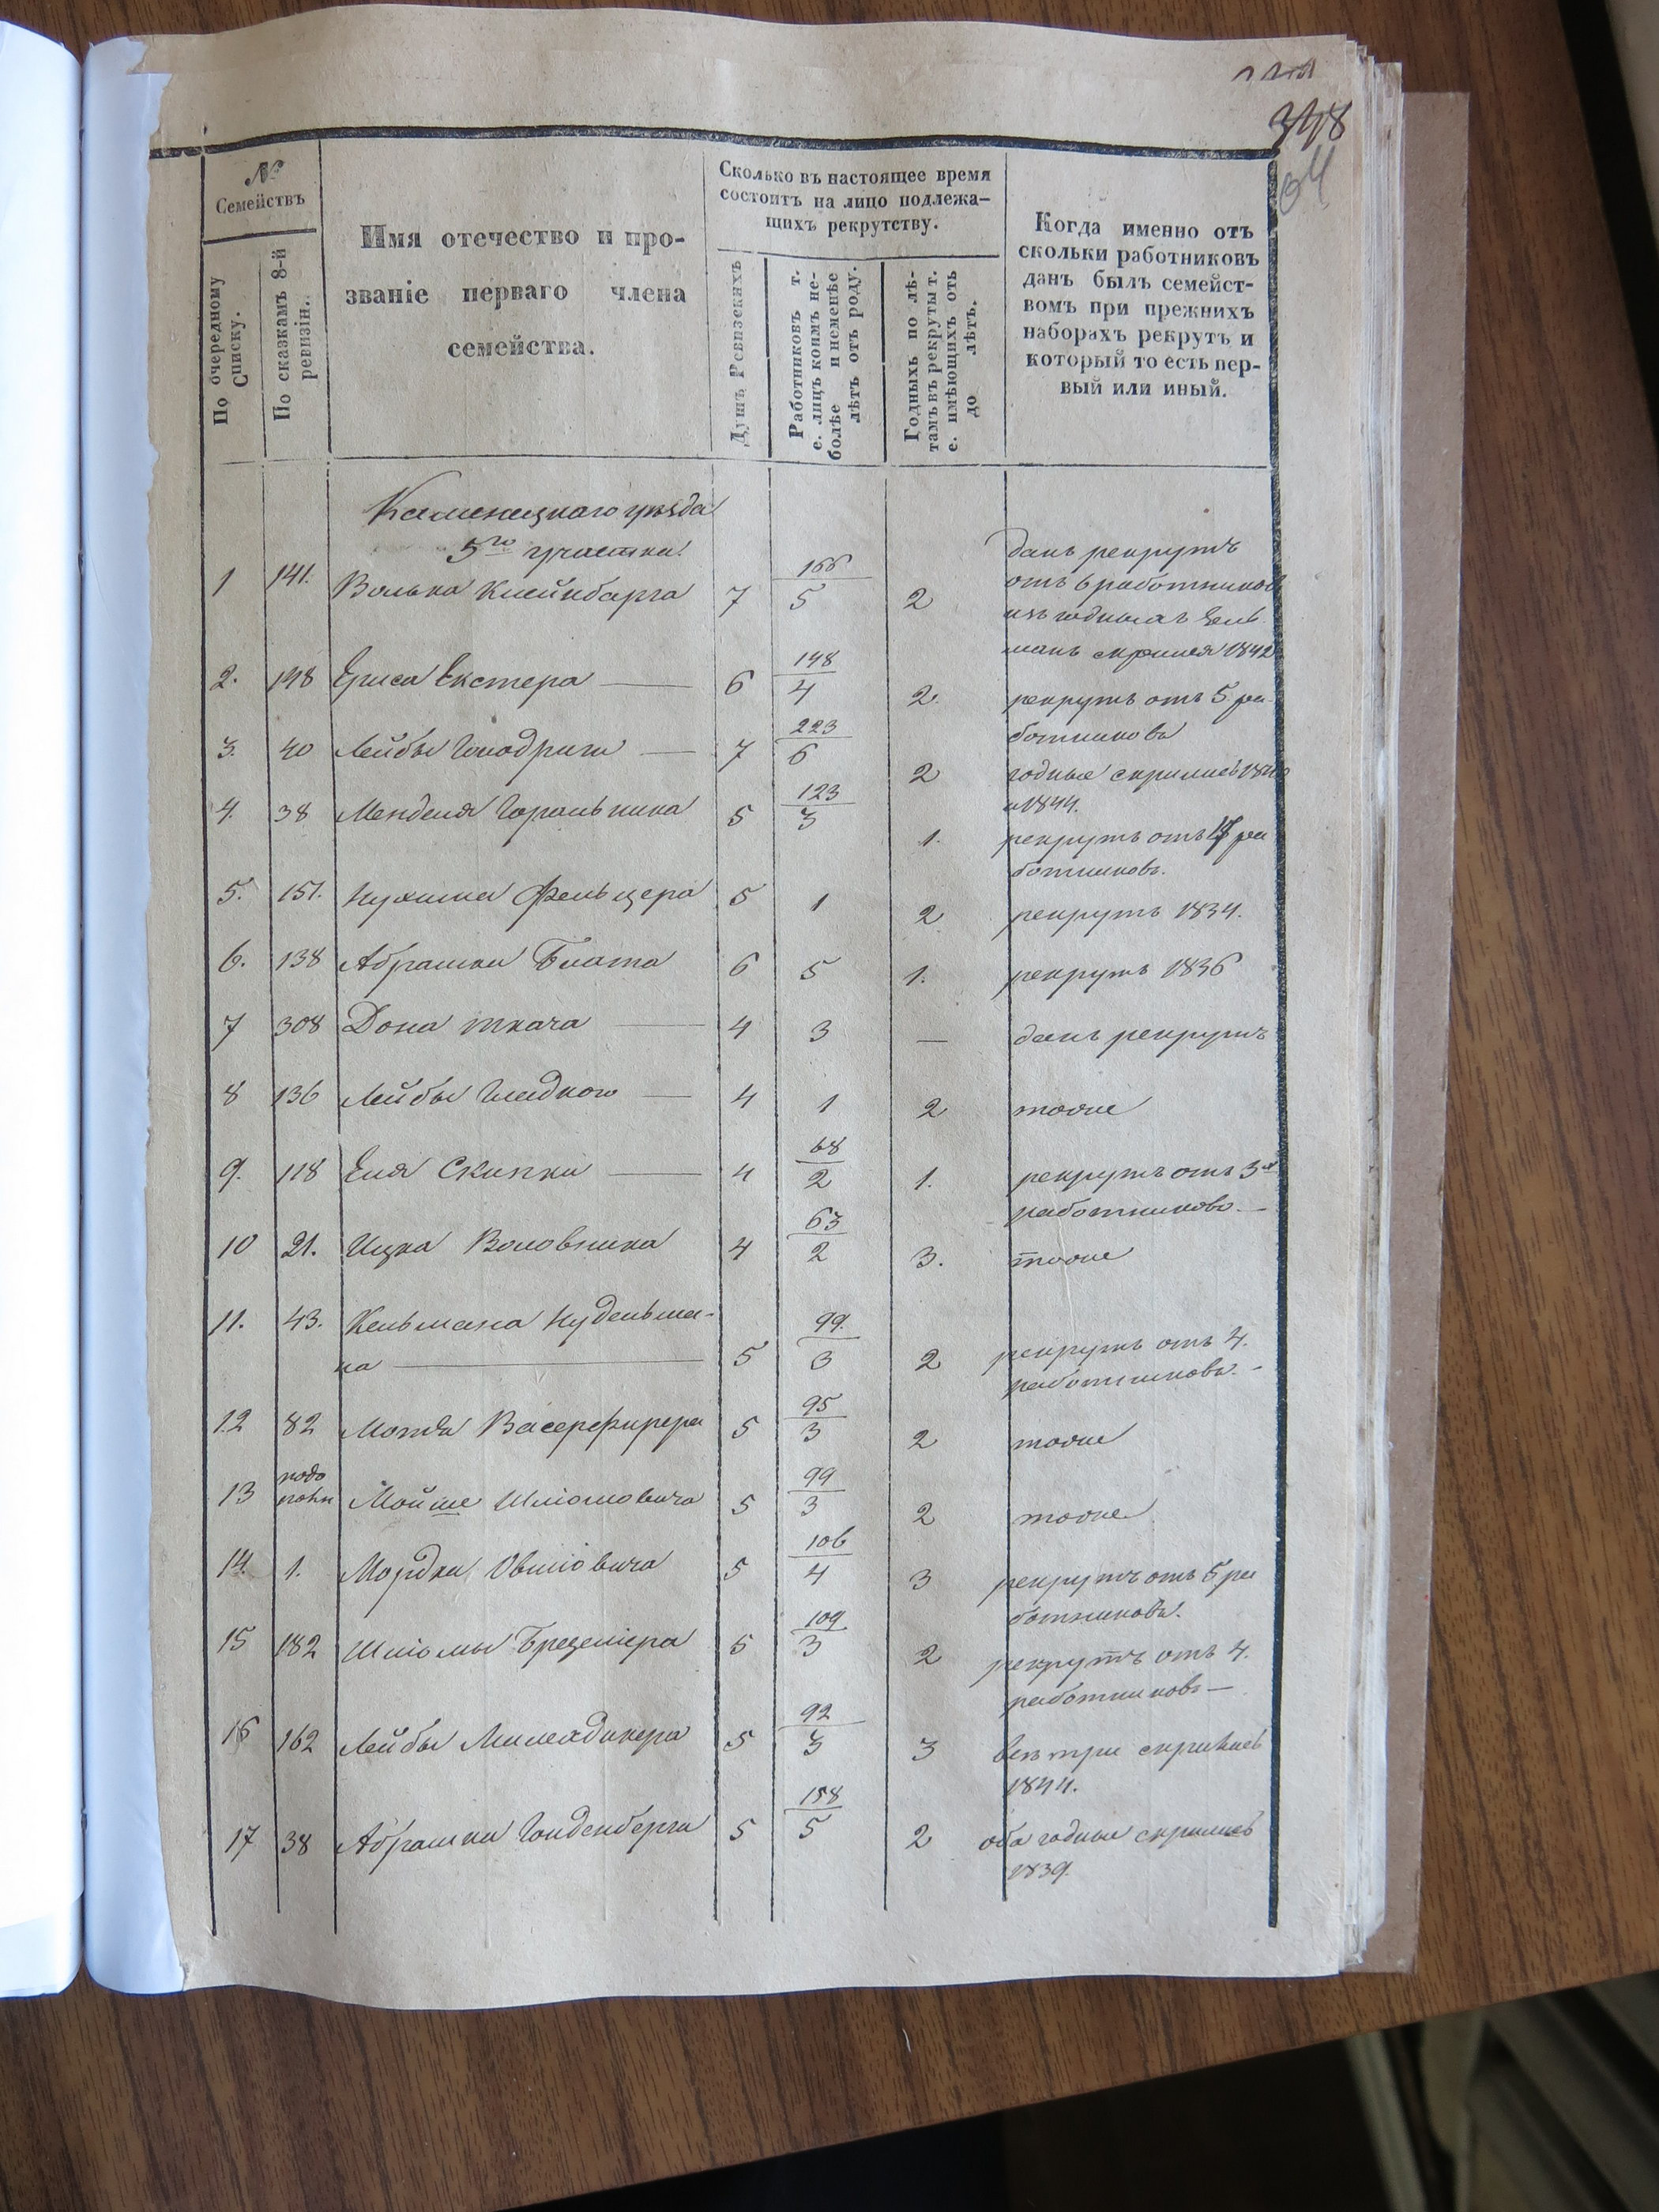 348
№
Семействъ
По очередному
Списку.
По сказкамъ 8-й
ревизіи.
Имя отечество и про-
званіе перваго члена
семейства.
Сколько въ настоящее время
состоитъ на лицо подлежа-
щихъ рекрутству.
Душъ Ревизскихъ
Работниковъ т.
е. лицъ коимъ не-
болѣе и неменѣе
лѣтъ отъ роду.
Годныхъ по лѣ-
тамъ въ рекруты т.
е. имѣющихъ отъ
до лѣтъ.
Когда именно отъ
скольки работниковъ
данъ былъ семейст-
вомъ при прежнихъ
наборахъ рекрутъ и
который то есть пер-
вый или иный.
Каменецкаго уѣзда
5го участка
1 141. Волька Клейнбарга 7 166/5 2 данъ рекрутъ
отъ 6 работниковъ
изъ годныхъ
скрился 1842
2. 198 Екстера — 6 148/4 2. рекрутъ отъ 5 ра
ботниковъ
3. 40 Лейбы — 7 223/6 2 годные скрились
и 1844.
4. 38 Менделя 5 123/3 1. рекрутъ отъ ра
ботниковъ.
5. 151. Нухима Фельцера 5 1 2 рекрутъ 1834.
6. 138 Абрашки Блата 6 5 1. рекрутъ 1836
7 308 Дона ткача — 4 3 — данъ рекрутъ
8 136 Лейбы Гладкого — 4 1 2 тоже
9. 118 Еля Скипки — 4 68/2 1. рекрутъ отъ 3х
работниковъ. —
10 21. Ицка Воловника 4 63/2 3. тоже
11. 43. Кельмана Нудельма-
на — 5 99./3 2 рекрутъ отъ 4.
работниковъ. -
12 82 Мотя Васерфирера 5 95/3 2 тоже
13 Мойше Шліомовича 5 99/3 2 тоже
14. 1. Мордка Овшіовича 5 106/4 3 рекрутъ отъ 5 ра
ботниковъ.
15 182 Шліомы 5 109/3 2 рекрутъ отъ 4.
работниковъ —
16 162 Лейбы 5 92/3 3 всѣ три скрились
1844.
17 38 Абрашки Голденберга 5 158/5 2 оба годные скрились
1839.